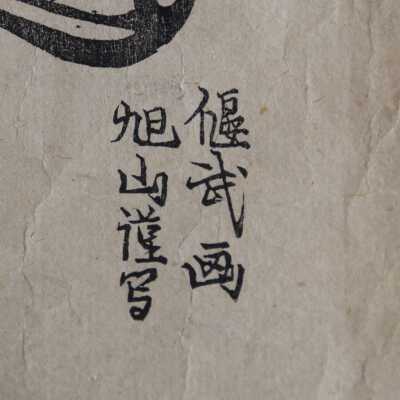 偃武画
旭山謹写